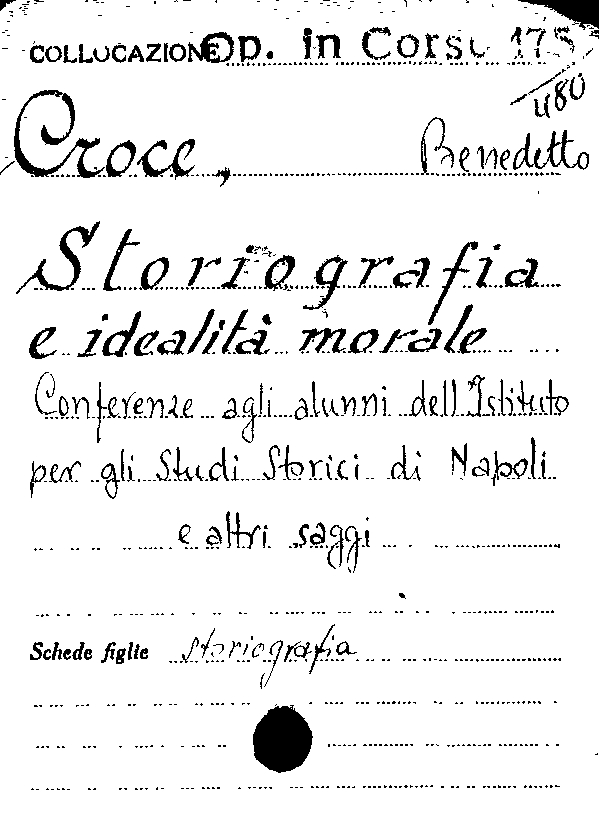 COLLOCAZIONE Op. in Corso 175
480
Croce, Benedetto
Storiografia
e idealità morale
Conferenze agli alunni dell'Istituto
per gli Studi Storici di Napoli
e altri saggi
Schede figlie storiografia